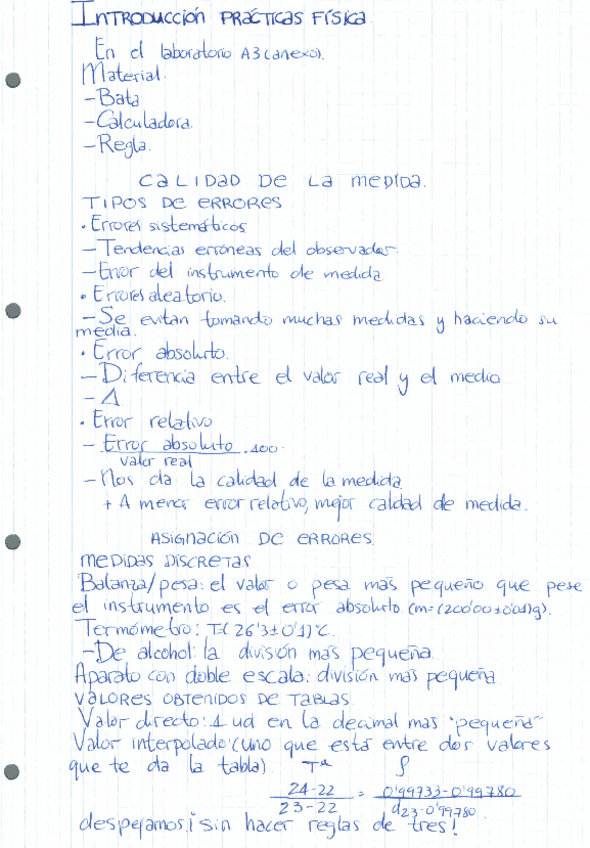 INTRODUCCIÓN PRÁCTICAS FÍSICA
En el laboratorio A3 (anexo).
Material.
- Bata
- Calculadora.
- Regla.
CALIDAD DE LA MEDIDA.
TIPOS DE ERRORES
· Errores sistemáticos
- Tendencias erróneas del observador.
- Error del instrumento de medida
· Errores aleatorio.
- Se evitan tomando muchas medidas y haciendo su
media.
· Error absoluto.
- Diferencia entre el valor real y el medio
- Δ
· Error relativo
- Error absoluto / valor real · 100
- Nos da la calidad de la medida
+ A menor error relativo, mejor calidad de medida.
ASIGNACIÓN DE ERRORES
MEDIDAS DISCRETAS
Balanza/pesa: el valor o pesa más pequeño que pese
el instrumento es el error absoluto (m=(200'00±0'01)g).
Termómetro: T=(26'3±0'1)ºC.
- De alcohol: la división más pequeña
Aparato con doble escala: división más pequeña
VALORES OBTENIDOS DE TABLAS
Valor directo: 1 ud en la decimal mas "pequeña"
Valor interpolado (uno que está entre dos valores
que te da la tabla) Tª ρ
24-22 / 23-22 = 0'99733-0'99780 / d23-0'99780
despejamos ¡ sin hacer reglas de tres!